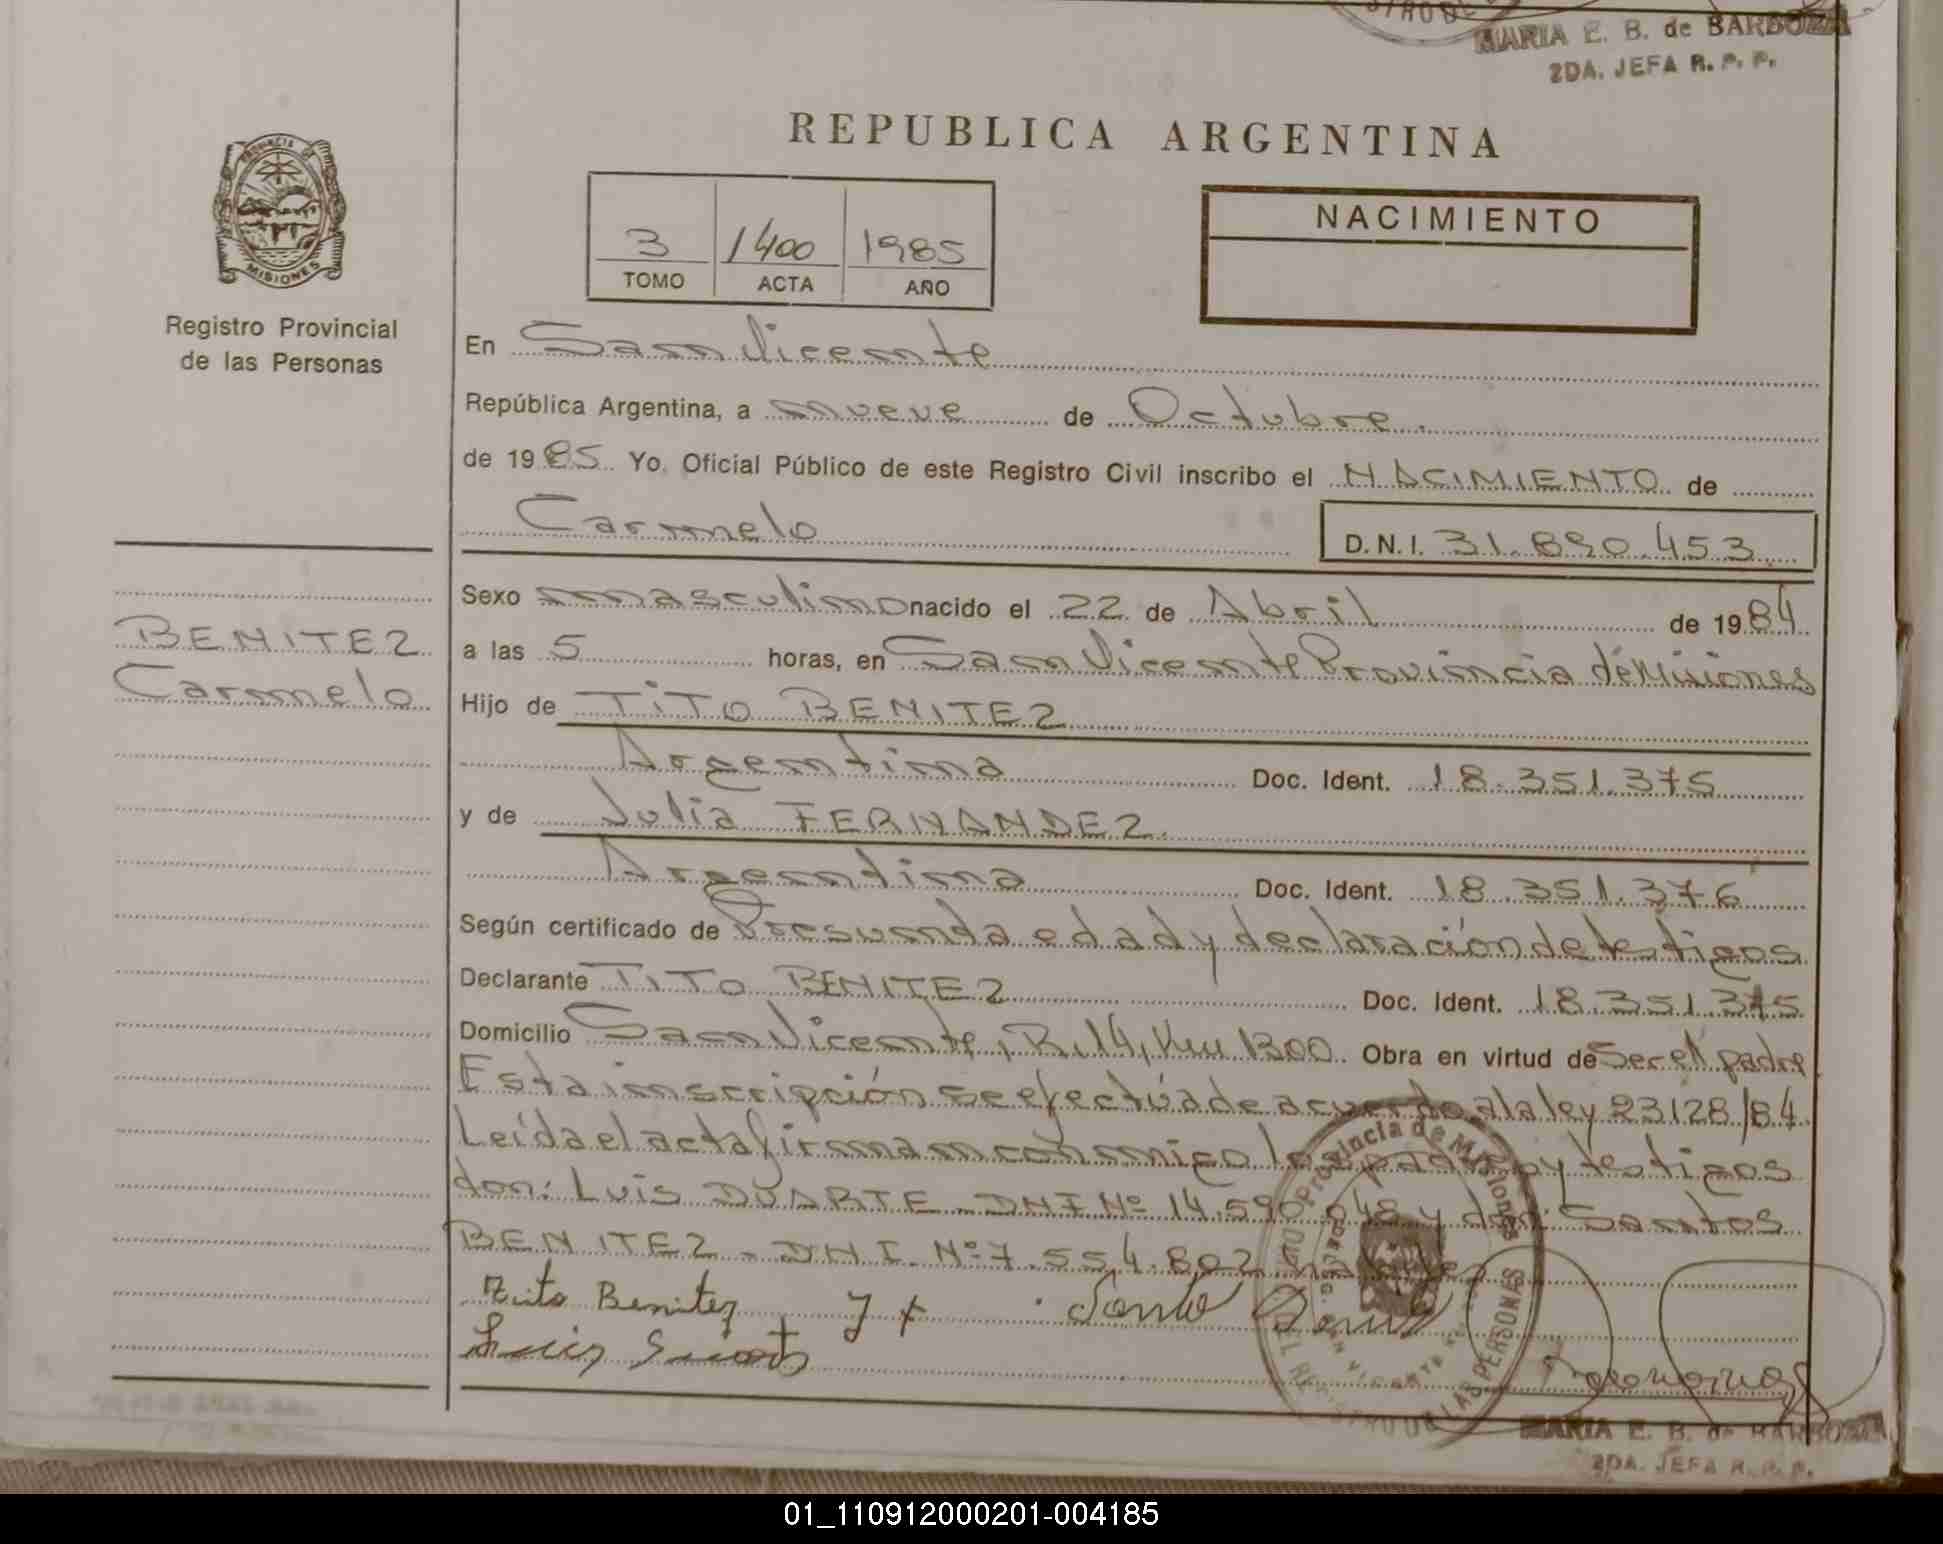 MARIA E. B. de BARBOZA
2DA. JEFA R. P. P.
REPUBLICA ARGENTINA
PROVINCIA DE
MISIONES
Registro Provincial
de las Personas
3 1400 1985
TOMO ACTA AÑO
NACIMIENTO
En San Vicente
República Argentina, a nueve de Octubre.
de 1985 Yo, Oficial Público de este Registro Civil inscribo el NACIMIENTO de
Carmelo D.N.I. 31.890.453
BENITEZ
Carmelo
Sexo masculino nacido el 22 de Abril de 1984
a las 5 horas, en San Vicente Provincia de Misiones
Hijo de TITO BENITEZ
Argentina Doc. Ident. 18.351.375
y de Julia FERNANDEZ.
Argentina Doc. Ident. 18.351.376
Según certificado de Presunta edad y declaración de testigos
Declarante TITO BENITEZ Doc. Ident. 18.351.375
Domicilio San Vicente, R.14, Km 1300 Obra en virtud de Ser el padre
Esta inscripción se efectúa de acuerdo a la ley 23128/84
Leída el acta firman conmigo los padres y testigos
don: Luis DUARTE - DNI Nº 14.590.648 y don: Santos
BENITEZ - DNI. Nº 7.554.802
Tito Benitez
Provincia de Misiones
REGISTRO DE LAS PERSONAS
MARIA E. B. de BARBOZA
2DA. JEFA R. P. P.
01_110912000201-004185